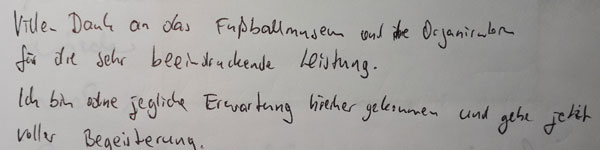 Vielen Dank an das Fußballmuseum und die Organisatoren
für die sehr beeindruckende Leistung.
Ich bin ohne jegliche Erwartung hierher gekommen und gehe jetzt
voller Begeisterung.